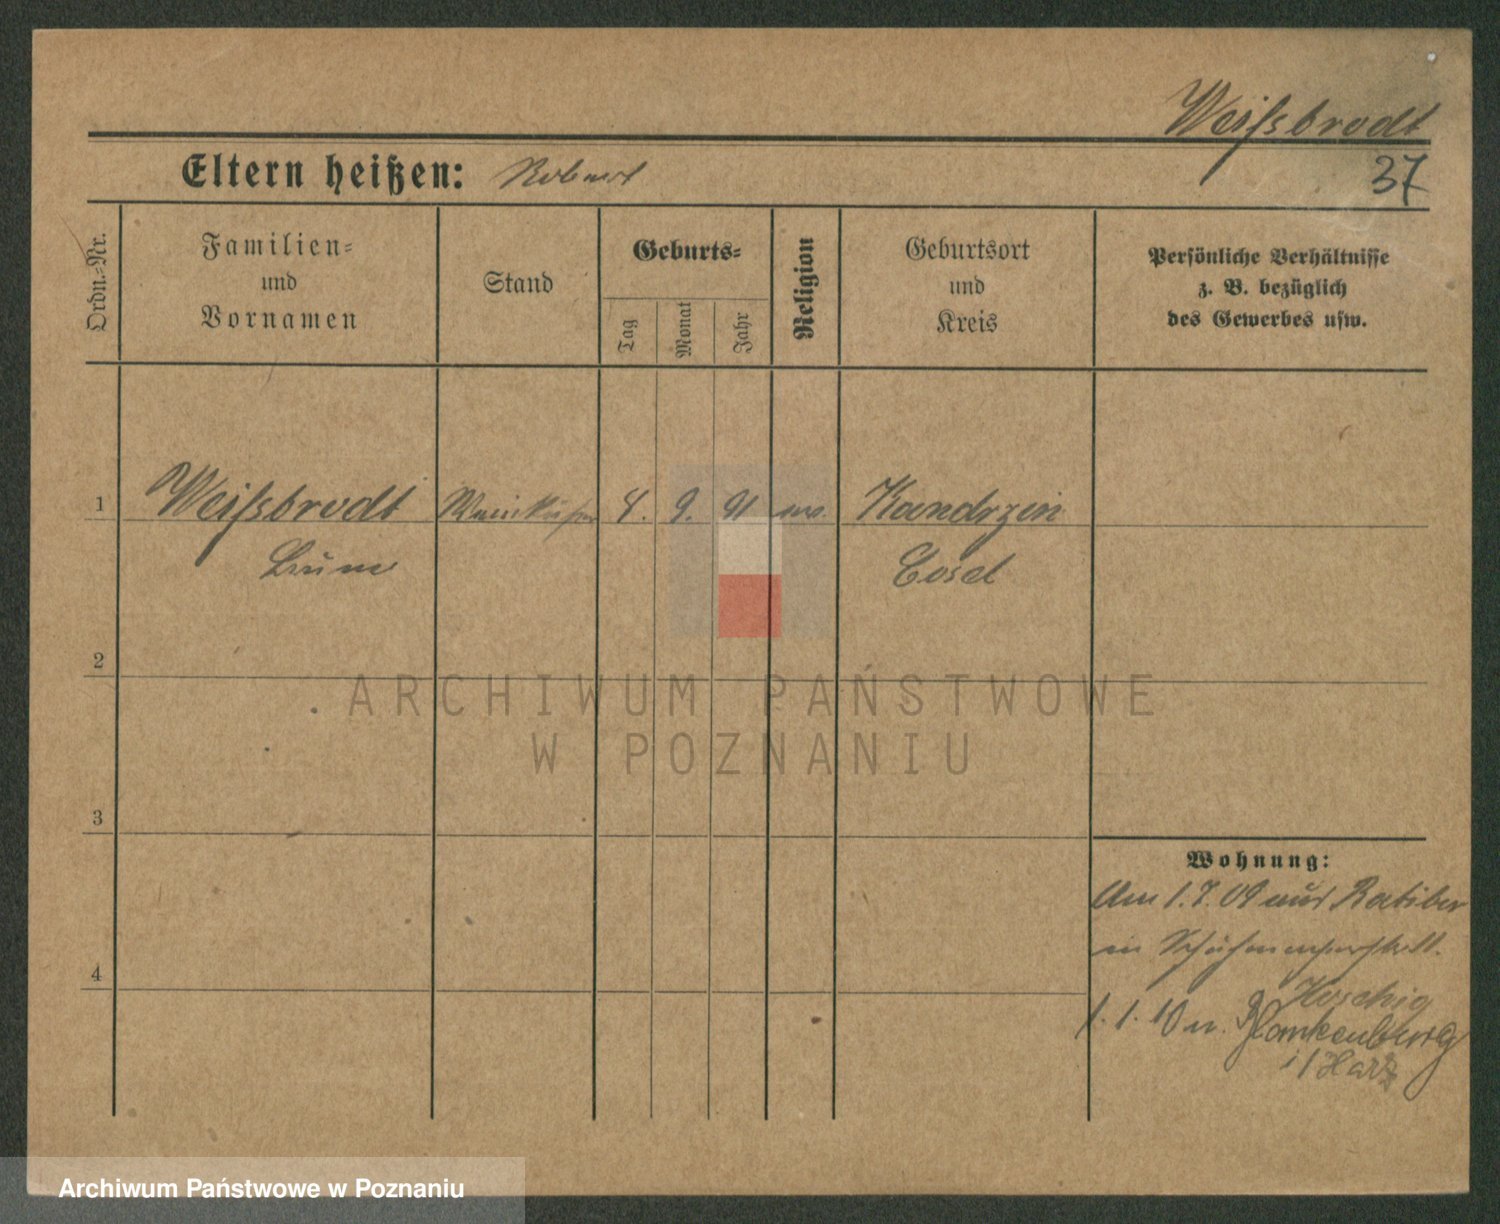 Weißbrodt
Eltern heißen: Robert
37
Ordn.=Nr.
Familien=
und
Vornamen
Stand
Geburts=
Tag
Monat
Jahr
Religion
Geburtsort
und
Kreis
Persönliche Verhältnisse
z. B. bezüglich
des Gewerbes usw.
1 Weißbrodt 9. 91 Kandrzin
Cosel
2
3
4
Wohnung:
Am 1.7.09 aus Ratibor
in
Koschig
1.1.10 n. Blankenburg
i/Harz
ARCHIWUM PAŃSTWOWE
W POZNANIU
Archiwum Państwowe w Poznaniu